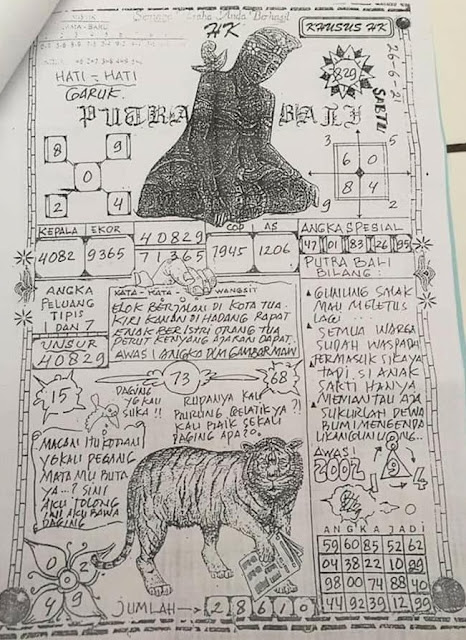 Semoga Usaha Anda Berhasil
HK
KHUSUS HK
HATI - HATI
GARUK.
829
26-6-21
SABTU
PUTRA BALI
8 9
0
2 4
3 5
6 0
8 4
9 2
KEPALA EKOR
4082 9365
40829
71365
COP AS
7945 1206
ANGKA SPESIAL
47 01 83 26 95
ANGKA
PELUANG
TIPIS
1 DAN 7
UNSUR
40829
KATA - KATA WANGSIT
ELOK BERJALAN DI KOTA TUA.
KIRI KANAN DI HADANG RAPAT
ENAK BERISTRI ORANG TUA
PERUT KENYANG AJARAN DAPAT.
AWAS! ANGKA DLM GAMBAR MAIN
PUTRA BALI
BILANG:
GUNUNG SALAK
MAU MELETUS
LAGI
SEMUA WARGA
SUDAH WASPADA
TERMASUK SI KAYA
TADI, SI ANAK
SAKTI HANYA
MEMANTAU AJA
SUKURLAH DEWA
BUMI MENGENDA
LIKAN GUNUNG..
AWAS!
2002
1 9 4
0
15
73
68
DAGING
YG KAU
SUKA!!
RUPANYA KAU
KAU BAIK SEKALI
DAGING APA?
YG KAU PEGANG
MATA MU BUTA
YA...? SINI
AKU TOLONG
INI AKU BAWA
DAGING
0 2
4 9
JUMLAH → 28610
ANGKA JADI
59 60 85 52 62
04 38 22 10 99
98 00 74 88 40
44 92 39 12 99